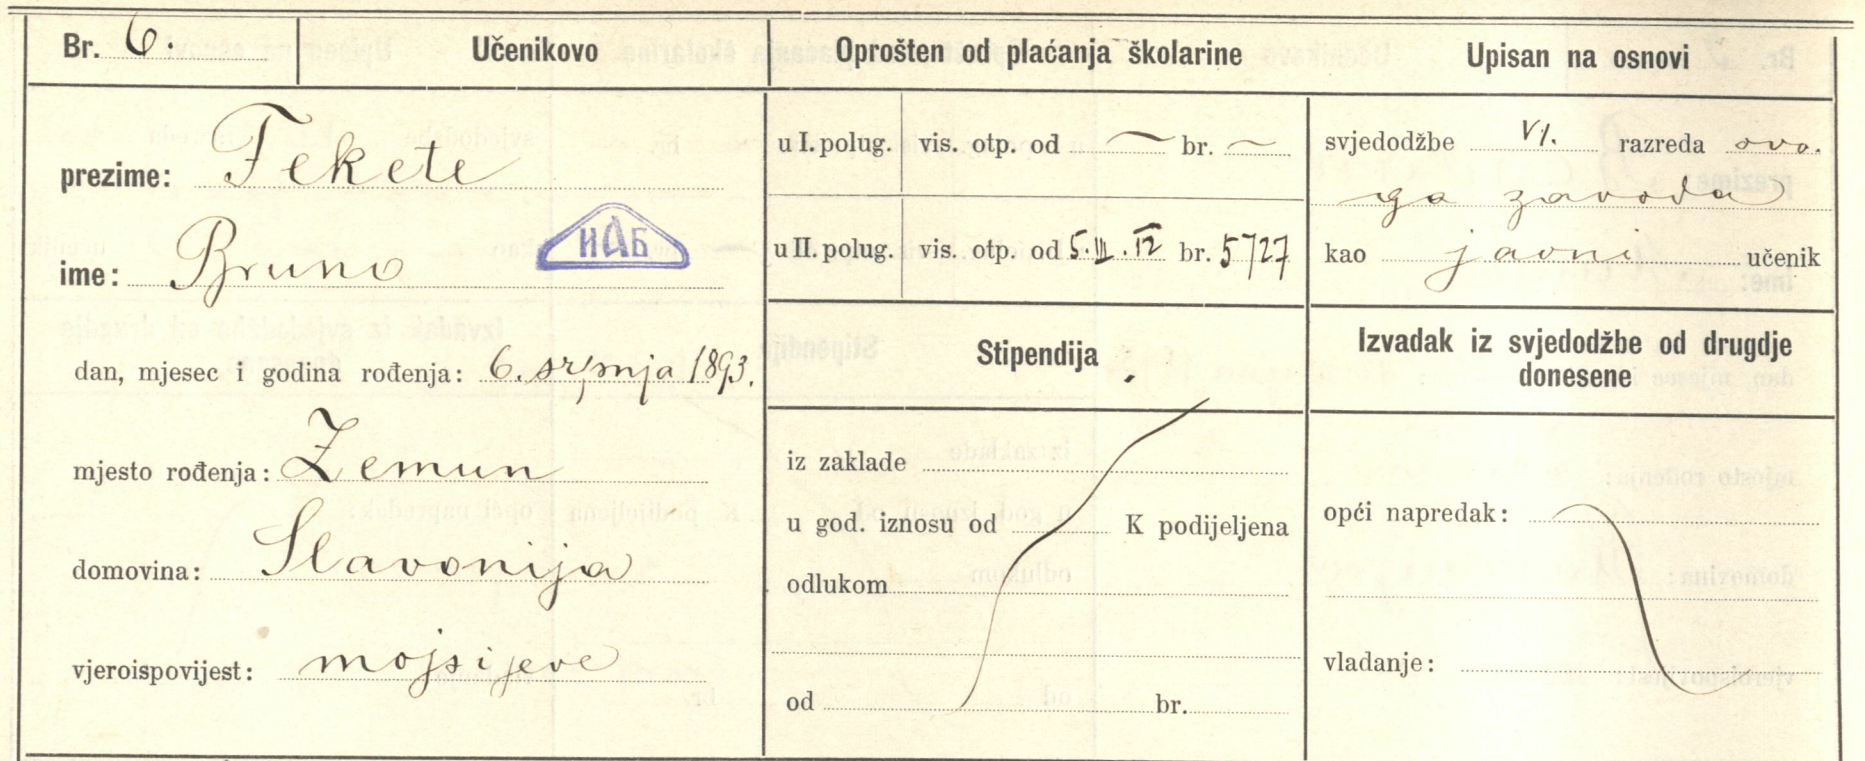 Br. 6.
Učenikovo
prezime: Fekete
ime: Bruno
ИАБ
dan, mjesec i godina rođenja: 6. srpnja 1893.
mjesto rođenja: Zemun
domovina: Slavonija
vjeroispovijest: mojsijeve
Oprošten od plaćanja školarine
u I. polug. vis. otp. od ~ br. ~
u II. polug. vis. otp. od br. 5727
Stipendija
iz zaklade
u god. iznosu od K podijeljena
odlukom
od br.
Upisan na osnovi
svjedodžbe VI. razreda ovo-
ga zavoda
kao javni učenik
Izvadak iz svjedodžbe od drugdje
donesene
opći napredak:
vladanje: